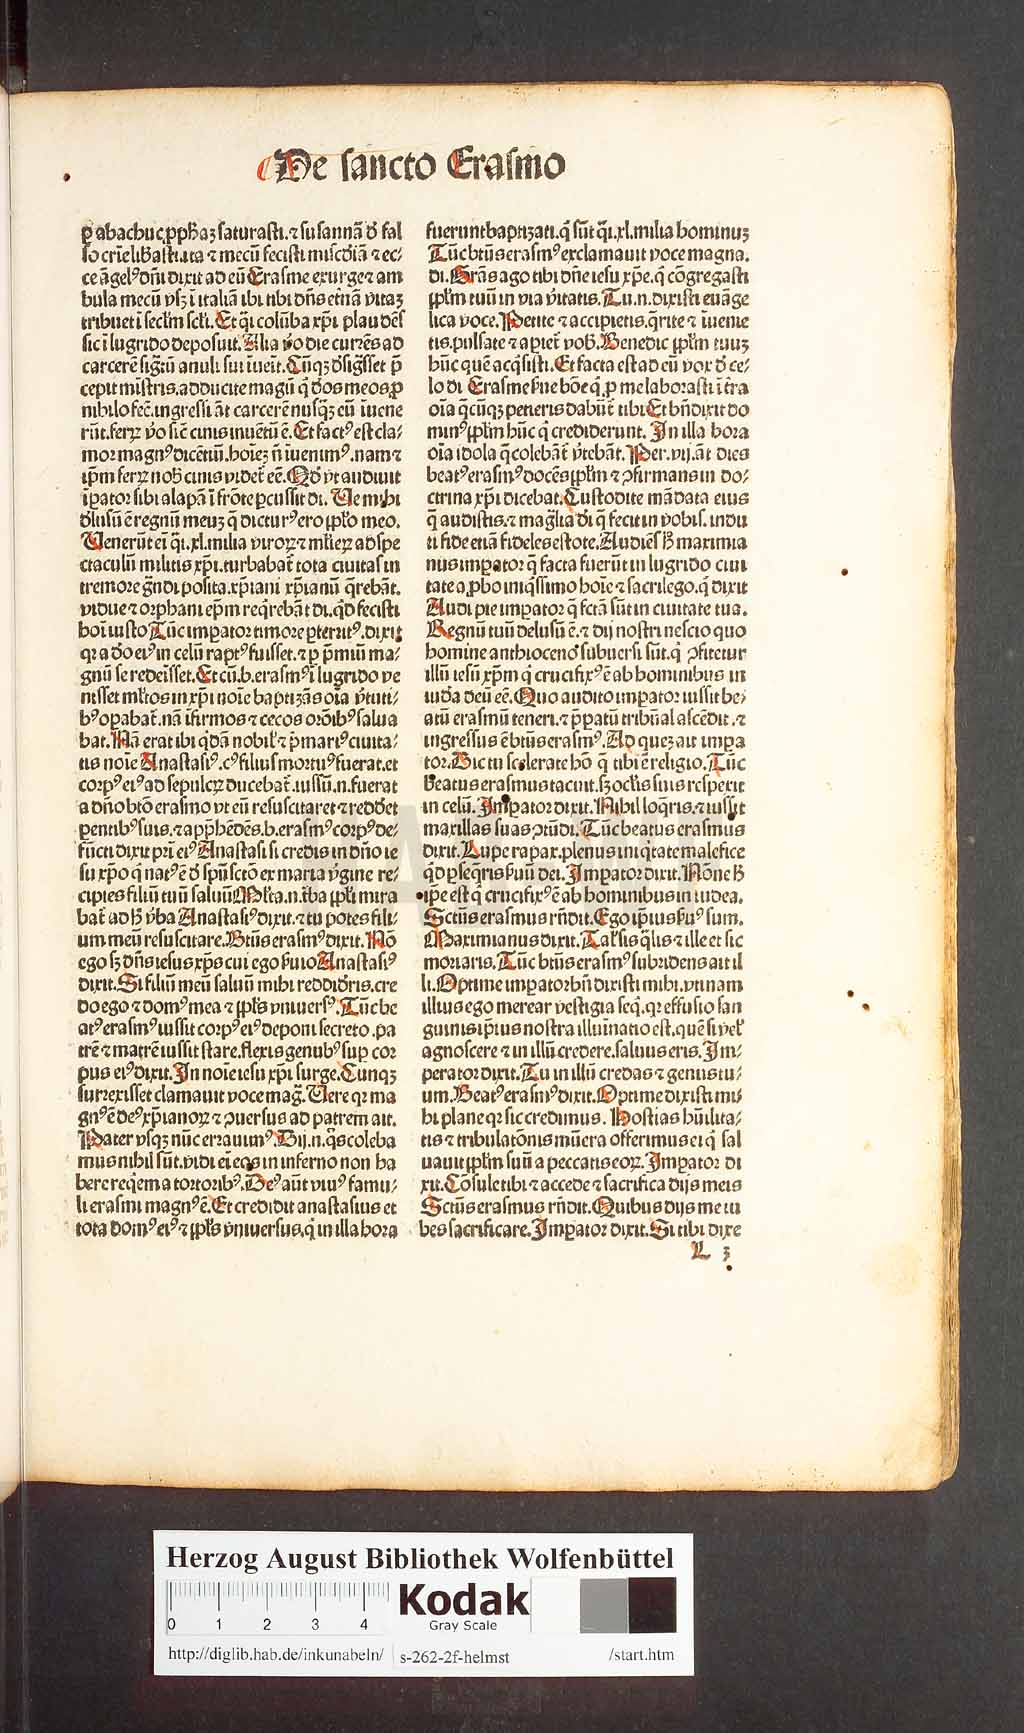 De sancto Erasmo
ꝑ abachuc ꝓphaꝫ saturasti. ⁊ susannā ꝺ̄ fal
so crīe lib̄asti. ita ⁊ mecū fecisti mīscd̄iā ⁊ ec⸗
ce āgelꝰ dn̄i dixit ad eū Erasme exurge ⁊ am
bula mecū vsqꝫ ī italiā ibi tibi dn̄s etnā v̄itaꝫ
tribuet ī secl̄m scl̄i. Et qͥ colūba xp̄i plaudēs
sic ī lugrido deposuit. Alia v̄o die currēs ad
carcerē sigtū anuli sui īuēit. Cūqꝫ
cepit mīstris. adducite magū q̄ ꝺ̄os meos ꝓ
nihilo fec̄. ingressi āt carcerē nusqꝫ eū iuene
rūt. ferꝝ v̄o sic̄ cinis inuētū ē. Et factꝰ est cla⸗
mor magnꝰ dicētiū. hoīeꝫ n̄ īuenimꝰ. nam ⁊
ip̄m ferꝝ nob̄ cinis videt̄ eē. Qd̄ vt audiuit
īꝑator sibi alapā ī frōte ꝑcussit di. Ve mihi
ꝺ̄lusū ē regnū meuꝫ q̄ dicturꝰ ero ppl̄o meo.
Venerūt ei qͥ. xl. milia viroꝝ ⁊ ml̄ieꝝ ad spe
ctaculū militis xp̄i. turbabat̄ tota ciuitas in
tremore gn̄di posita. xp̄iani xp̄ianū q̄rebāt.
vidue ⁊ orphani ep̄m req̄rebāt di. qd̄ fecisti
hoī iusto Tūc imꝑator timore ꝑterritꝰ. dixit
qꝛ a ꝺ̄o eiꝰ in celū raptꝰ fuisset. ⁊ ꝑ p̄miū ma⸗
gnū se redeisset. Et cū. b. erasmꝰ ī lugrido ve
nisset ml̄tos in xp̄i noīe baptizās oīa v̄tuti⸗
bꝰ oꝑabat̄. nā īfirmos ⁊ cecos orōibꝰ salua
bat. Nā erat ibi qͥdā nobil̄ ⁊ p̄mariꝰ ciuita⸗
tis noīe Anastasiꝰ. cꝰ filius mortuꝰ fuerat. et
corpꝰ eiꝰ ad sepulcꝝ ducebat̄. iussū. n. fuerat
a dn̄o btō erasmo vt eū resuscitaret ⁊ reddet
ꝑentibꝰ suis. ⁊ apphēdēs. b. erasmꝰ corpꝰ de⸗
fūcti dixit pr̄i eiꝰ Anastasi si credis in dn̄o ie
su xp̄o q̄ natꝰ ē ꝺ̄ spū sctō ex maria v̄gine re⸗
cipies filiū tuū saluū Ml̄ta. n. tb̄a ppl̄i mira
bat̄ ad h̄ v̄ba Anastasiꝰ dixit. ⁊ tu potes fili⸗
um meū resuscitare. Btūs erasmꝰ dixit. Nō
ego sꝫ dn̄s iesus xp̄s cui ego ẜuio Anastasiꝰ
dixit. Si filiū meū saluū mihi reddideris. cre
do ego ⁊ domꝰ mea ⁊ ppl̄s vniuersꝰ. Tūc be
atꝰ erasmꝰ iussit corpꝰ eiꝰ deponi secreto. pa
trē ⁊ matrē iussit stare. flexis genubꝰ suꝑ cor
pus eiꝰ dixit. In noīe iesu xp̄i surge. Cunqꝫ
surrexisset clamauit voce maḡ. Vere qꝛ ma
gnꝰ ē deꝰ xp̄ianoꝝ ⁊ ꝯuersus ad patrem ait.
Pater vsqꝫ nūc errauimꝰ. Dij. n. q̄s coleba
mus nihil sūt. vidi ei eos in inferno non ha
bere req̄em a tortoribꝰ. Deꝰ aūt viuꝰ famu⸗
li erasmi magnꝰ ē. Et credidit anastasius et
tota domꝰ eiꝰ ⁊ ppl̄s v̄niuersus. q̄ in illa hora
fuerunt baptizati. q̄ sūt qͥ. xl. milia hominuꝫ
Tūc btūs erasmꝰ exclamauit voce magna.
di. Gr̄as ago tibi dn̄e iesu xp̄e. q̄ cōgregasti
ppl̄m tuū in via v̄itatis. Tu. n. dixisti euāge
lica voce. Petite ⁊ accipietis. q̄rite ⁊ īuenie
tis. pulsate ⁊ aꝑiet̄ vob̄. Benedic ppl̄m tuuꝫ
hūc quē acq̄sisti. Et facta est ad eū vox ꝺ̄ ce⸗
lo di Erasme ẜue bōe q̄ ꝓ me laborasti ī tr̄a
oīa q̄cūqꝫ petieris dabūt̄ tibi Et bn̄dixit do
minꝰ ppl̄m hūc q̄ crediderunt. In illa hora
oīa idola q̄ colebāt v̄tebāt̄. Per. vij. āt dies
beatꝰ erasmꝰ docēs ppl̄m ⁊ ꝯfirmans in do⸗
ctrina xp̄i dicebat. Custodite mādata eius
q̄ audistis. ⁊ maḡlia di q̄ fecit in vobis. indu
ti fide etiā fideles estote. Audiēs h̄ maximia
nus imꝑator q̄ facta fuerūt in lugrido ciui
tate a ꝓbo iniqͥssimo hoīe ⁊ sacrilego. q̄ dixit
Audi pie imꝑator q̄ fctā sūt in ciuitate tua.
Regnū tuū delusū ē. ⁊ dij nostri nescio quo
homine anthioceno subuersi sūt. q̄ ꝯfitetur
illū iesū xp̄m q̄ crucifixꝰ ē ab hominibus in
iuda deū eē. Quo audito imꝑator iussit be⸗
atū erasmū teneri. ⁊ p̄ꝑatū tribūal ascēdit. ⁊
ingressus ē btūs erasmꝰ. Ad quez ait imꝑa
tor. Dic tu scelerate hō q̄ tibi ē religio. Tūc
beatus erasmus tacuit. sꝫ oclis suis respexit
in celū. Imꝑator dixit. Nihil loq̄ris. ⁊ iussit
maxillas suas ꝯtūdi. Tūc beatus erasmus
dixit. Lupe rapax. plenus iniqͥtate malefice
qd̄ ꝑseq̄ris ẜuū dei. Imꝑator dixit. Nōne h̄
ip̄e est q̄ crucifixꝰ ē ab hominibus in iudea.
Sctūs erasmus rn̄dit. Ego ip̄ius ẜuꝰ sum.
Maximianus dixit. Tal̄ sis q̄lis ⁊ ille et sic
moriaris. Tūc btūs erasmꝰ subridens ait il
li. Optime imꝑator bn̄ dixisti mihi. vtinam
illius ego merear vestigia seq̄. qꝛ effusio san
guinis ip̄ius nostra illuīnatio est. quē si vel̄
agnoscere ⁊ in illū credere. saluus eris. Im⸗
perator dixit. Tu in illū credas ⁊ genus tu⸗
um. Beatꝰ erasmꝰ dixit. Optime dixisti mi⸗
hi plane qꝛ sic credimus. Hostias hūilita⸗
tis ⁊ tribulatōnis mūera offerimus ei q̄ sal
uauit ppl̄m suū a peccatis eoꝝ. Imꝑator di
xit. Cōsule tibi ⁊ accede ⁊ sacrifica dijs meis
Sctūs erasmus rn̄dit. Quibus dijs me iu
bes sacrificare. Imꝑator dixit. Si tibi dixe
L 3
Herzog August Bibliothek Wolfenbüttel
0 1 2 3 4
Kodak
Gray Scale
http://diglib.hab.de/inkunabeln/ s-262-2f-helmst /start.htm